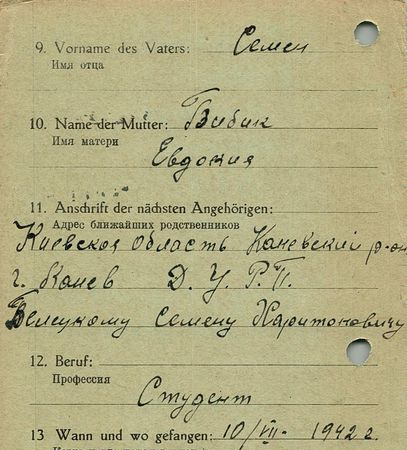 9. Vorname des Vaters: Семен
Имя отца
10. Name der Mutter: Бибик
Имя матери
Евдокия
11. Anschrift der nächsten Angehörigen:
Адрес ближайших родственников
Киевская область Каневский р-он
г. Канев Д. У. Р. П.
Белецкому Семену Харитоновичу
12. Beruf:
Профессия
Студент
13 Wann und wo gefangen: 10/VII- 1942 г.